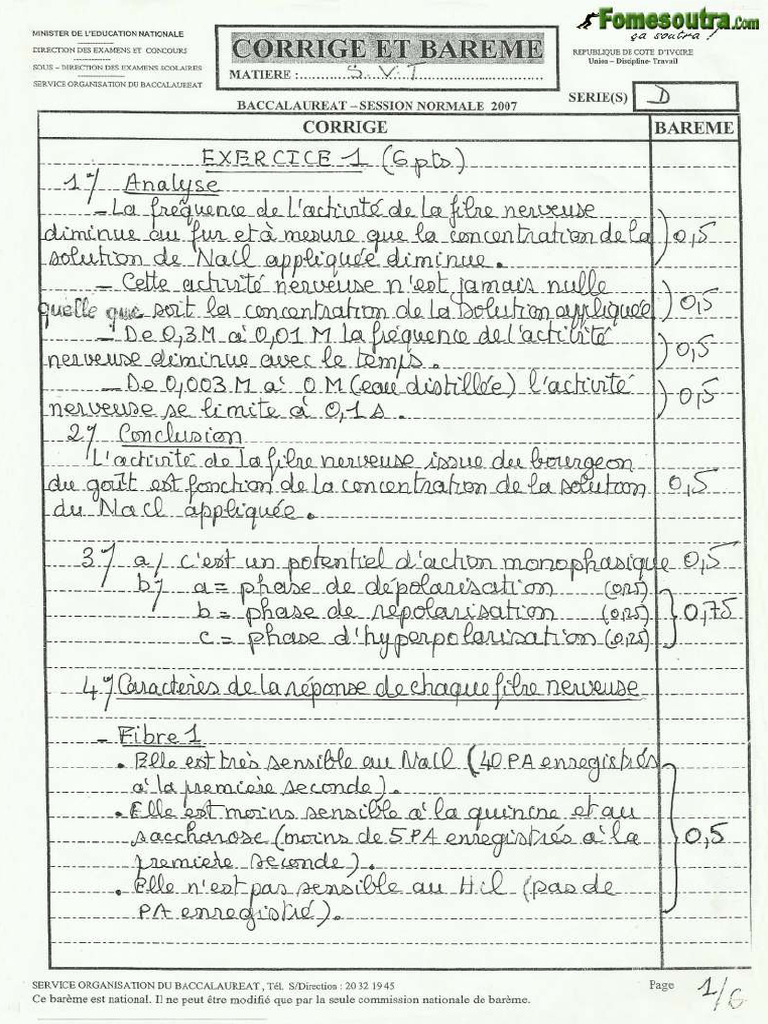 MINISTER DE L'EDUCATION NATIONALE
DIRECTION DES EXAMENS ET CONCOURS
SOUS – DIRECTION DES EXAMENS SCOLAIRES
SERVICE ORGANISATION DU BACCALAUREAT
CORRIGE ET BAREME
MATIERE :...............S.V.T...............
Fomesoutra.com
ça soutra !
REPUBLIQUE DE COTE D'IVOIRE
Union – Discipline- Travail
SERIE(S) D
BACCALAUREAT – SESSION NORMALE 2007
CORRIGE BAREME
EXERCICE 1 (6 pts)
1°/ Analyse
– La fréquence de l'activité de la fibre nerveuse
diminue au fur et à mesure que la concentration de la 0,5
solution de Nacl appliquée diminue.
– Cette activité nerveuse n'est jamais nulle
quelle que soit la concentration de la solution appliquée 0,5
– De 0,3 M à 0,01 M la fréquence de l'activité
nerveuse diminue avec le temps. 0,5
– De 0,003 M à 0 M (eau distillée) l'activité
nerveuse se limite à 0,1 s. 0,5
2°/ Conclusion
L'activité de la fibre nerveuse issue du bourgeon
du goût est fonction de la concentration de la solution 0,5
du Nacl appliquée.
3°/ a/ c'est un potentiel d'action monophasique 0,5
b/ a = phase de dépolarisation (0,25)
b = phase de répolarisation (0,25) 0,75
c = phase d'hyperpolarisation (0,25)
4°/ Caractères de la réponse de chaque fibre nerveuse
– Fibre 1
• Elle est très sensible au Nacl (40 PA enregistrés
à la première seconde).
• Elle est moins sensible à la quinine et au
saccharose (moins de 5 PA enregistrés à la 0,5
première seconde).
• Elle n'est pas sensible au Hcl (pas de
PA enregistré).
SERVICE ORGANISATION DU BACCALAUREAT , Tél. S/Direction : 20 32 19 45
Ce barème est national. Il ne peut être modifié que par la seule commission nationale de barème.
Page 1/6